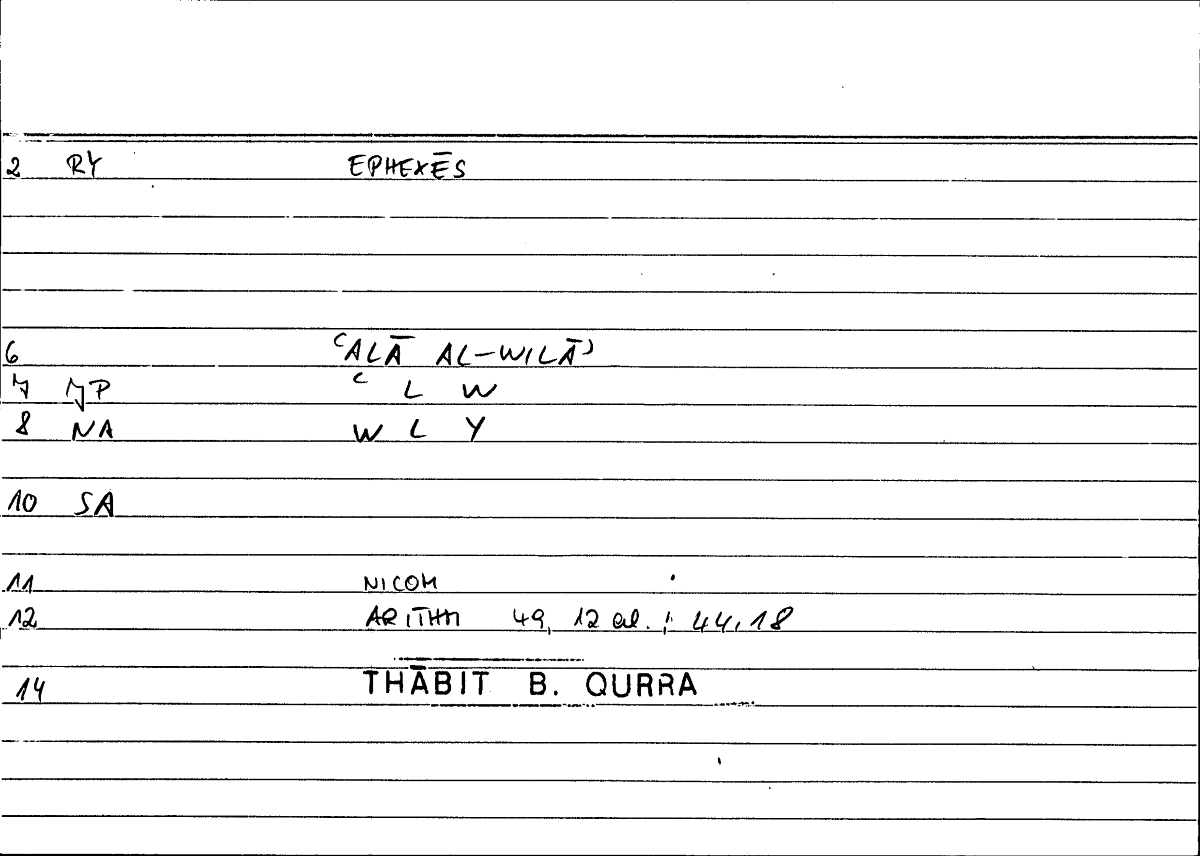 2 RY EPHEXĒS
6 ʿALĀ AL-WILĀʾ
7 JP ʿ L W
8 NA W L Y
10 SA
11 NICOM
12 ARITHM 49, 12 al. ; 44,18
14 THĀBIT B. QURRA